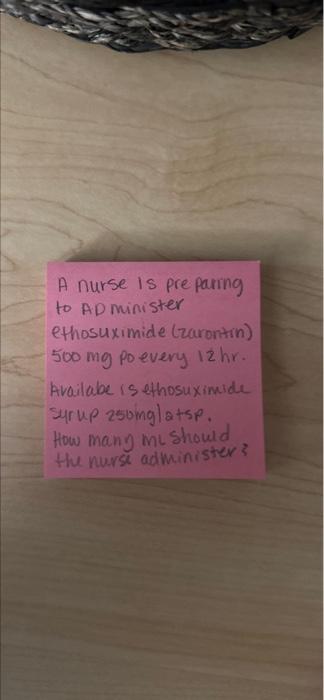 A nurse is preparing
to ADminister
ethosuximide (zarontin)
500 mg PO every 12 hr.
Availabe is ethosuximide
syrup 250mg/ tsp.
How many mL should
the nurse administer?